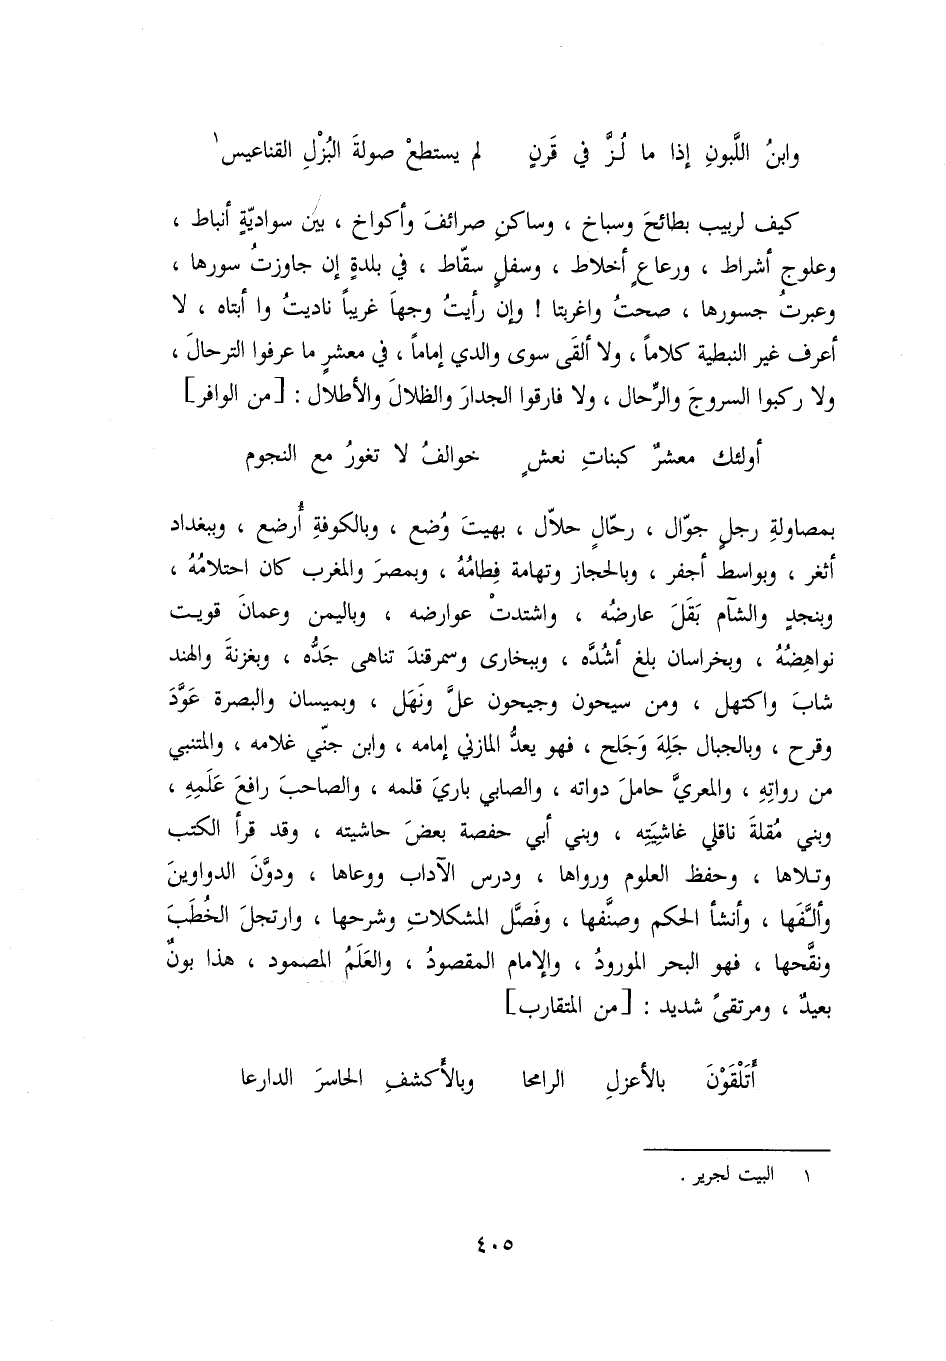 وابنُ اللَّبونِ إذا ما لُـزَّ في قَرنٍ لم يستطعْ صولةَ البُزْلِ القناعيس١
كيف لربيب بطائحَ وسباخ ، وساكنِ صرائفَ وأكواخ ، بين سواديّةٍ أنباط ،
وعلوج أشراط ، ورعاعٍ أخلاط ، وسفلٍ سقّاط ، في بلدةٍ إن جاوزتُ سورها ،
وعبرتُ جسورها ، صحتُ واغربتا ! وإن رأيتُ وجهاً غريباً ناديتُ وا أبتاه ، لا
أعرف غير النبطية كلاماً ، ولا ألقى سوى والدي إماماً ، في معشرٍ ما عرفوا الترحالَ ،
ولا ركبوا السروجَ والرِّحال ، ولا فارقوا الجدارَ والظلالَ والأطلال : [من الوافر]
أولئك معشرٌ كبناتِ نعشٍ خوالفُ لا تغورُ مع النجوم
بمصاولةِ رجلٍ جوّال ، رحّالٍ حلاّل ، بهيتَ وُضع ، وبالكوفةِ أُرضع ، وببغداد
أثغر ، وبواسط أجفر ، وبالحجاز وتهامة فِطامُهُ ، وبمصرَ والمغرب كان احتلامُهُ ،
وبنجدٍ والشآم بَقَلَ عارضُه ، واشتدتْ عوارضه ، وباليمن وعمانَ قويت
نواهِضُهُ ، وبخراسان بلغ أشُدَّه ، وببخارى وسمرقندَ تناهى جَدُّه ، وبغزنةَ والهند
شابَ واكتهل ، ومن سيحون وجيحون علَّ ونَهَل ، وبميسان والبصرة عَوَّدَ
وقرح ، وبالجبال جَلِهَ وَجَلح ، فهو يعدُّ المازني إمامه ، وابن جنّي غلامه ، والمتنبي
من رواتِهِ ، والمعريَّ حاملَ دواته ، والصابي باريَ قلمه ، والصاحبَ رافعَ عَلَمِهِ ،
وبني مُقلةَ ناقلي غاشِيَتِه ، وبني أبي حفصة بعضَ حاشيته ، وقد قرأ الكتب
وتلاها ، وحفظ العلوم ورواها ، ودرس الآداب ووعاها ، ودوَّنَ الدواوينَ
وألَّفَها ، وأنشأ الحكم وصنَّفها ، وفَصَّل المشكلاتِ وشرحها ، وارتجلَ الخُطَبَ
ونقَّحها ، فهو البحر المورودُ ، والإمام المقصودُ ، والعَلَمُ المصمود ، هذا بونٌ
بعيدٌ ، ومرتقىً شديد : [من المتقارب]
أَتَلْقَوْنَ بالأعزلِ الرامحا وبالأَكشفِ الحاسرَ الدارعا
١ البيت لجرير .
٤٠٥